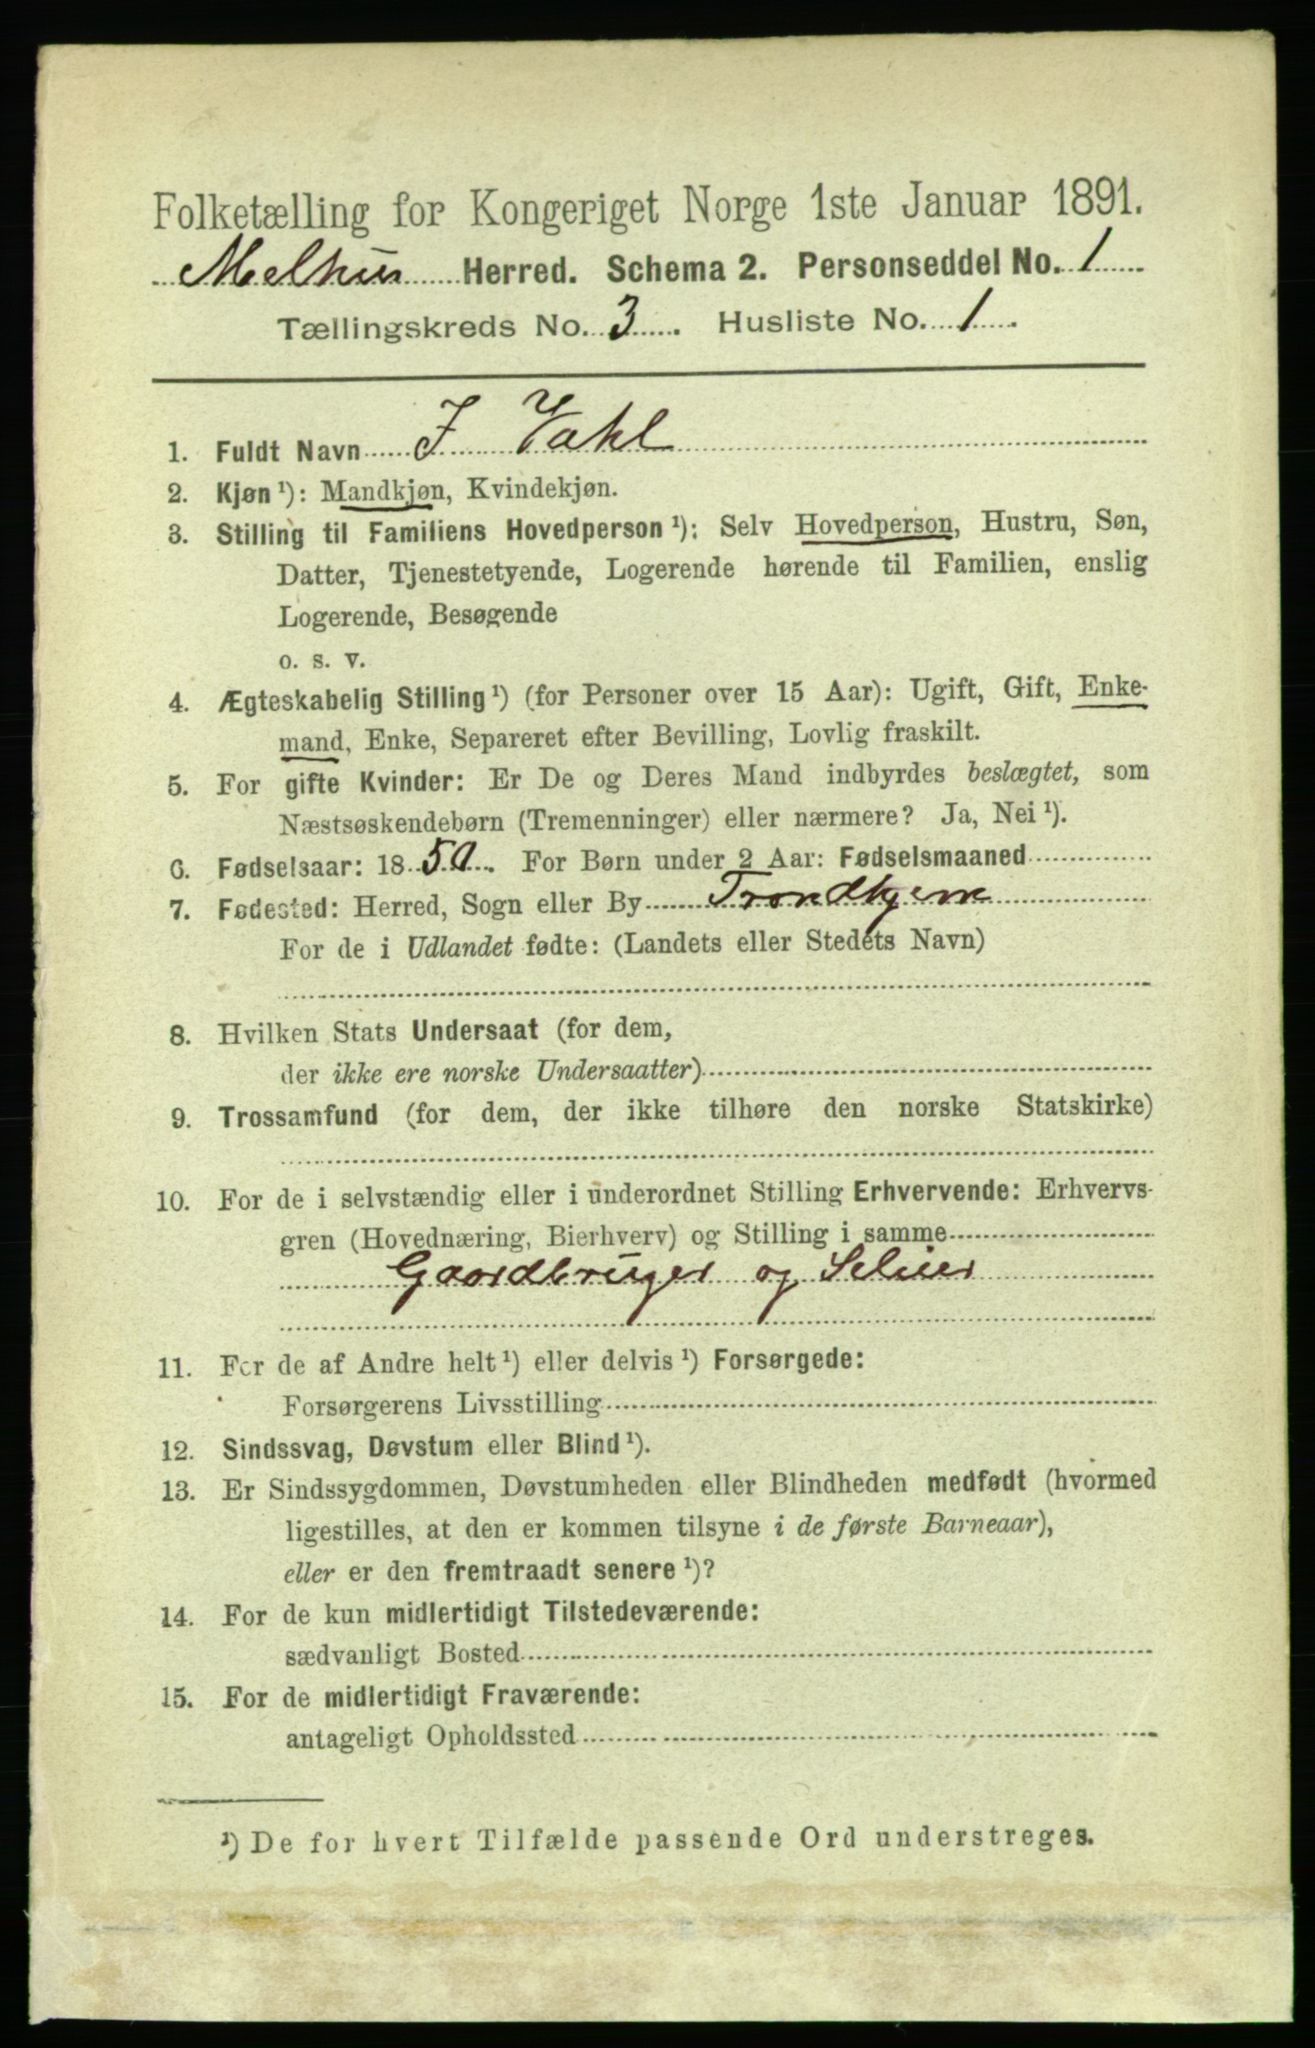 Folketælling for Kongeriget Norge 1ste Januar 1891.
Melhus Herred. Schema 2. Personseddel No. 1
Tællingskreds No. 3. Husliste No. 1.
1. Fuldt Navn J Vahl
2. Kjøn ¹): Mandkjøn, Kvindekjøn.
3. Stilling til Familiens Hovedperson ¹): Selv Hovedperson, Hustru, Søn,
Datter, Tjenestetyende, Logerende hørende til Familien, enslig
Logerende, Besøgende
o. s. v.
4. Ægteskabelig Stilling ¹) (for Personer over 15 Aar): Ugift, Gift, Enke-
mand, Enke, Separeret efter Bevilling, Lovlig fraskilt.
5. For gifte Kvinder: Er De og Deres Mand indbyrdes beslægtet, som
Næstsøskendebørn (Tremenninger) eller nærmere? Ja, Nei ¹).
6. Fødselsaar: 1850. For Børn under 2 Aar: Fødselsmaaned
7. Fødested: Herred, Sogn eller By Trondhjem
For de i Udlandet fødte: (Landets eller Stedets Navn)
8. Hvilken Stats Undersaat (for dem,
der ikke ere norske Undersaatter)
9. Trossamfund (for dem, der ikke tilhøre den norske Statskirke)
10. For de i selvstændig eller i underordnet Stilling Erhvervende: Erhvervs-
gren (Hovednæring, Bierhverv) og Stilling i samme
Gaardbruger og
11. For de af Andre helt ¹) eller delvis ¹) Forsørgede:
Forsørgerens Livsstilling
12. Sindssvag, Døvstum eller Blind ¹).
13. Er Sindssygdommen, Døvstumheden eller Blindheden medfødt (hvormed
ligestilles, at den er kommen tilsyne i de første Barneaar),
eller er den fremtraadt senere ¹)?
14. For de kun midlertidigt Tilstedeværende:
sædvanligt Bosted
15. For de midlertidigt Fraværende:
antageligt Opholdssted
¹) De for hvert Tilfælde passende Ord understreges.